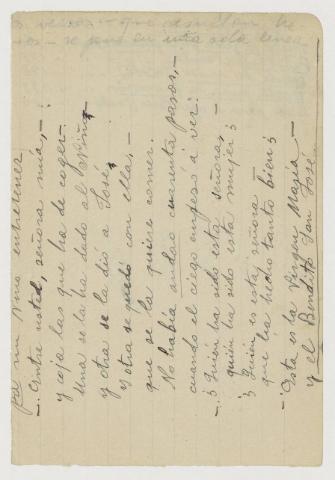 versos – que resultan he
– se pone en una sola linea
pa mi Nino entretener
– Entre usted, señora mia, –
y coja las que ha de coger –
Una se la ha dado al Niño,
y otra se la dió a José,
y otra se quedó con ella, –
que se la quiere comer.
No había andao cuarenta pasos, –
cuando el ciego empesó a ver:
– ¿Quién ha sido esta señora, –
quién ha sido esta mujer?
¿Quién es esta señora –
que ha hecho tanto bien?
– Esta es la Virgen Maria –
y el Bendito San José. –